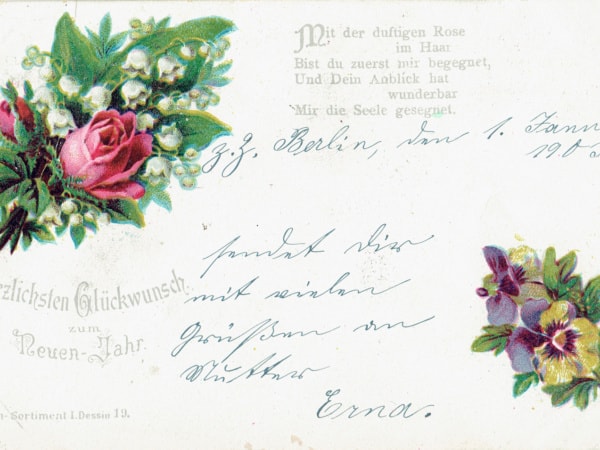 Mit der duftigen Rose
im Haar
Bist du zuerst mir begegnet,
Und Dein Anblick hat
wunderbar
Mir die Seele gesegnet.
z. Z. Berlin, den 1. Jann
190
sendet dir
mit vielen
Grüßen an
Mutter
Erna.
rzlichsten Glückwunsch
zum
Neuen-Jahr.
n-Sortiment I. Dessin 19.